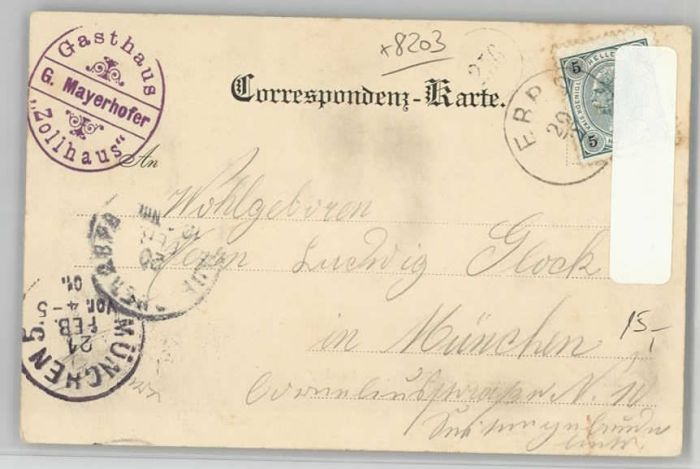 Gasthaus
G. Mayerhofer
"Zollhaus"
x8203
Correspondenz-Karte.
5
HELLER
5
ERP
20
An
Wohlgeboren
Herrn Ludwig Glock
in München
Corneliusstraße N. 10
15,-
MÜNCHEN 5.
21
FEB.
VOR. 4-5
01.